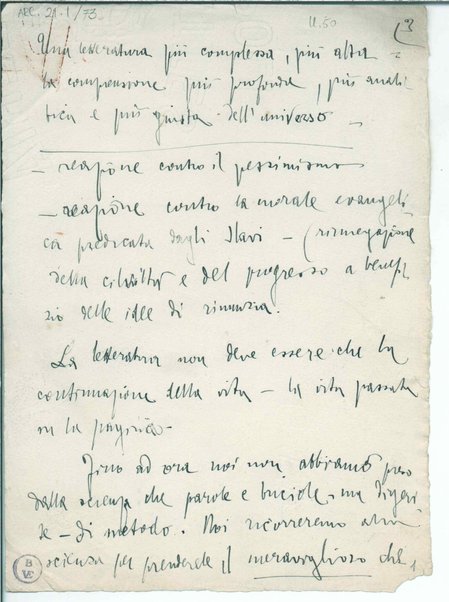 ARC. 21.1/73
U.50
(3
Una letteratura più complessa, più alta =
la comprensione più profonda, più anali
tica e più giusta dell'universo
– reazione contro il pessimismo
– reazione contro la morale evangeli
ca predicata dagli Slavi – (rinnegazione
della civiltà e del progresso a benefi
zio delle idee di rinunzia.
La letteratura non deve essere che la
continuazione della vita – la vita passata
in la
Fino ad ora noi non abbiamo preso
dalla scienza che parole e briciole, ma
di metodo. Noi ricorreremo alla
scienza per prenderle il meraviglioso che
B
VE